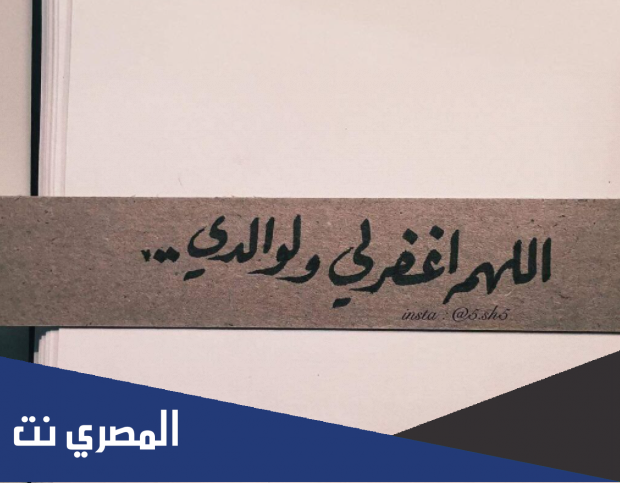 اللهم اغفرلي ولوالدي...
insta : @5.sh5
المصري نت